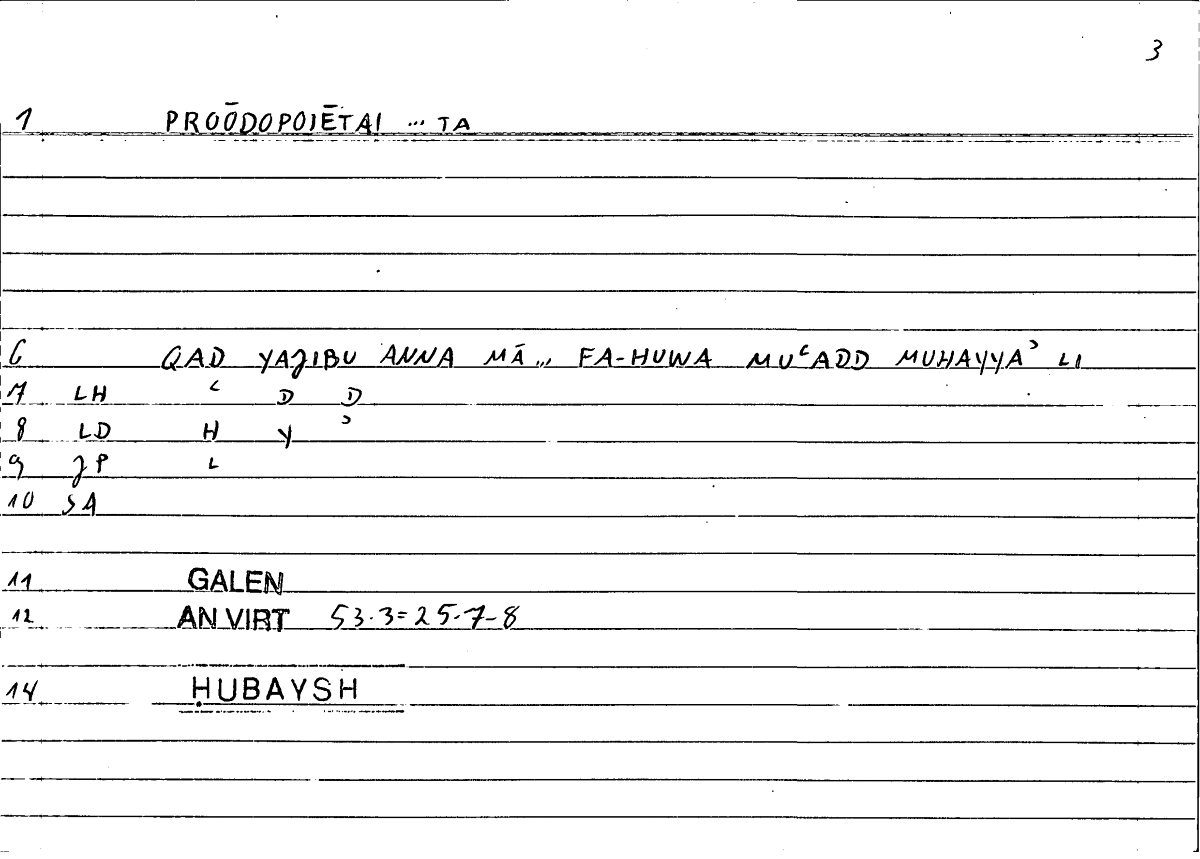 3
1 PROŌDOPOIĒTAI ... TA
6 QAD YAJIBU ANNA MĀ... FA-HUWA MUʿADD MUHAYYAʾ LI
7 LH ʿ D D
8 LD H Y ʾ
9 JP L
10 SA
11 GALEN
12 AN VIRT 53.3=25.7-8
14 ḤUBAYSH